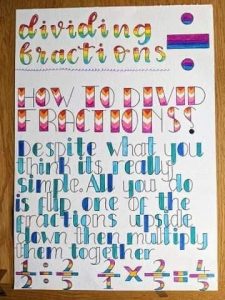 dividing
fractions ÷
HOW TO DIVID
FRACTIONS?
Despite what you
think its really
simple. All you do
is flip one of the
fractions upside
down then multiply
them together